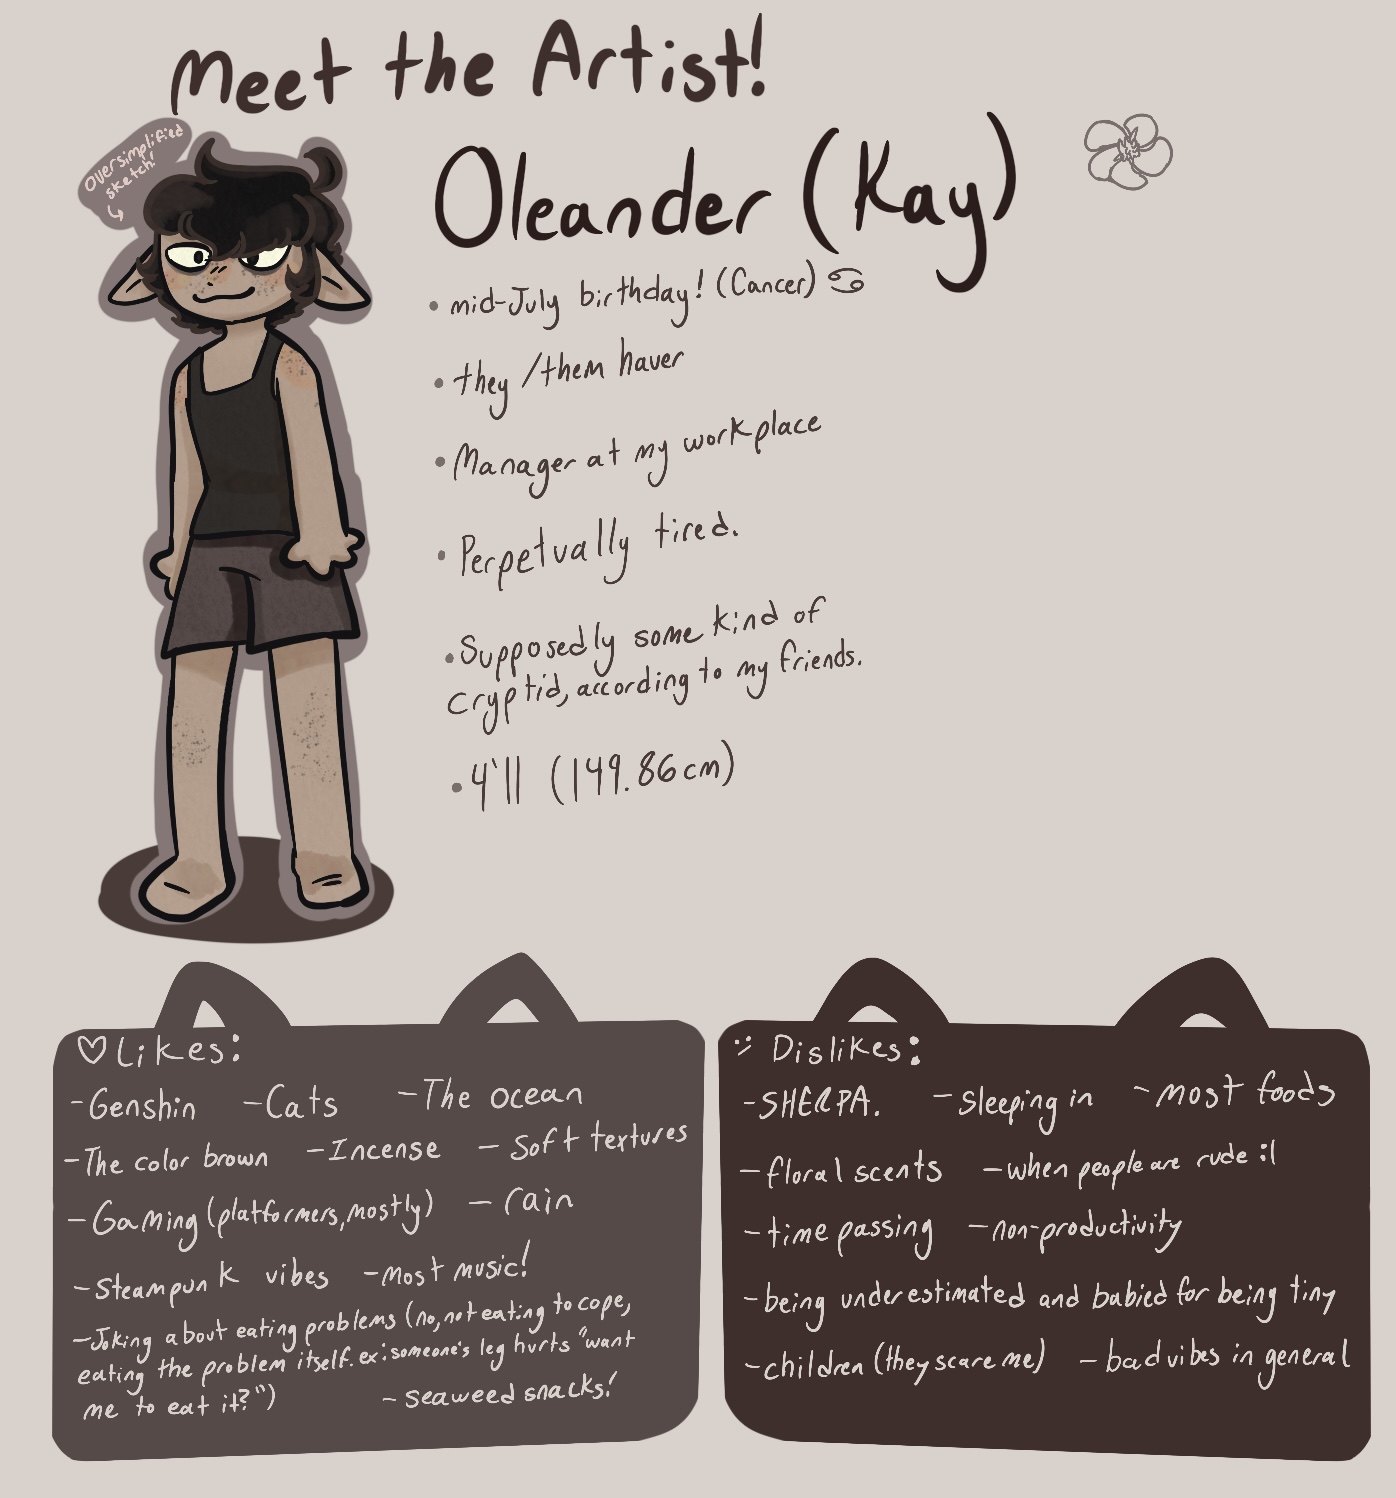 Meet the Artist!
oversimplified
sketch!
Oleander (Kay)
• mid-July birthday! (Cancer) ♋
• they/them haver
• Manager at my workplace
• Perpetually tired.
• Supposedly some kind of
cryptid, according to my friends.
• 4'11 (149.86cm)
♡ Likes:
-Genshin -Cats -The ocean
-The color brown -Incense -Soft textures
-Gaming (platformers, mostly) -rain
-Steampunk vibes -Most music!
-Joking about eating problems (no, not eating to cope,
eating the problem itself. ex: someone's leg hurts "want
me to eat it?")
-seaweed snacks!
Dislikes:
-SHERPA. -Sleeping in -most foods
-floral scents -when people are rude :l
-time passing -non-productivity
-being underestimated and babied for being tiny
-children (they scare me) -bad vibes in general